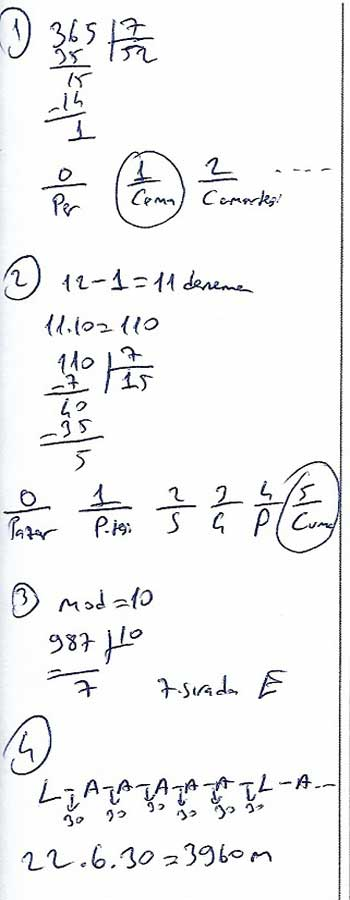 1
365 | 7
35 | 52
15
-14
1
0 1 2 ----
Per Cuma Cumartesi
2
12-1=11 deneme
11.10=110
110 | 7
-7 | 15
40
-35
5
0 1 2 3 4 5
Pazar P.tesi S Ç P Cuma
3 mod=10
987 | 10
7 7.sırada E
4
L-A-A-A-A-A-L-A...
30 30 30 30 30 30
22.6.30=3960m